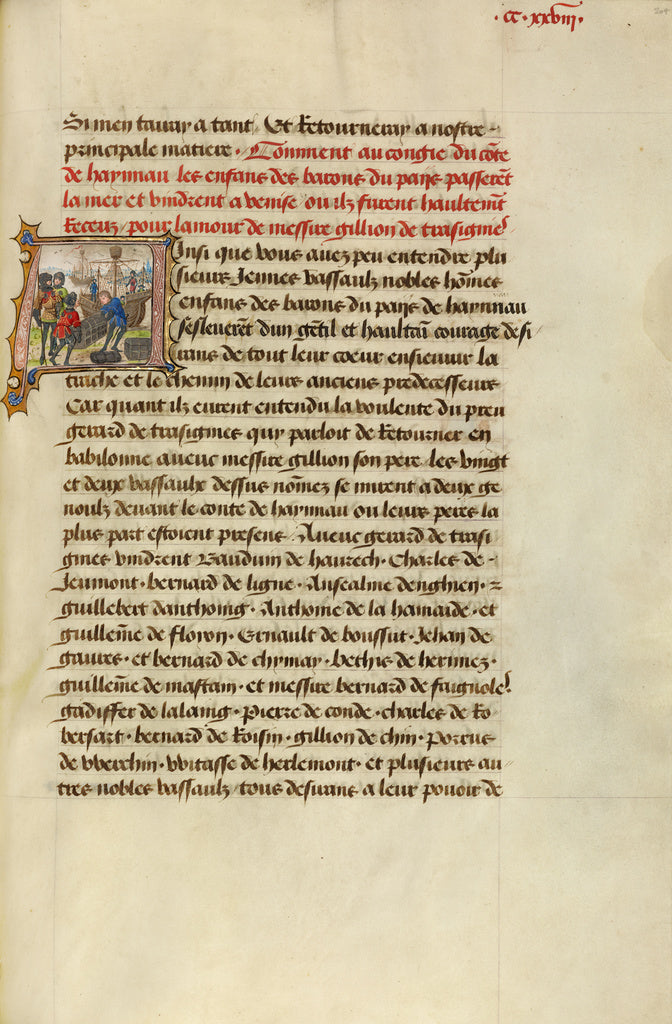 · CC · xxviij ·
Si men tairay a tant / Et Retourneray a nostre -
principale matiere · Comment au congie du cōte
de haynnau les enfans des barons du pays passerēt
la mer et vindrent a venise ou ilz furent haultemēt
Receuz / pour lamour de messire gillion de trasignies
Ainsi que vous avez peu entendre plu
sieurs Jennes vassaulz nobles hōmes
enfans des barons du pays de haynnau
sesleverēt dun gētil et haultaī courage desi
rans de tout leur coeur ensievuir la
trache et le chemin de leurs anciens predecesseurs
Car quant ilz eurent entendu la voulente du preu
gerard de trasignies quy parloit de Retourner en
babilonne avecuc messire gillion son pere les vingt
et deux vassaulx dessus nōmez se mirent a deux ge
noulz devant le conte de haynnau ou leurs peres la
plus part estoient presens / Avecuc gerard de trasi
gnies vindrent Bauduin de havrech · Charles de -
Jeumont · bernard de ligne · Ansealme denghien · z
guillebert danthoing · Anthoine de la hamaide · et
guillem̄e de floyon · Ernault de boussut · Jehan de
gavres · et bernard de chymay · bethis de hermez ·
guillem̄e de mastain · et messire bernard de faignoles
gadiffer de lalaing · Pierre de conde · charles de Ro
bersart · bernard de Roisin · gillion de chin · Porrus
de vverchin · vvitasse de herlemont · et plusieurs au
tres nobles vassaulz tous desirans a leur povoir de